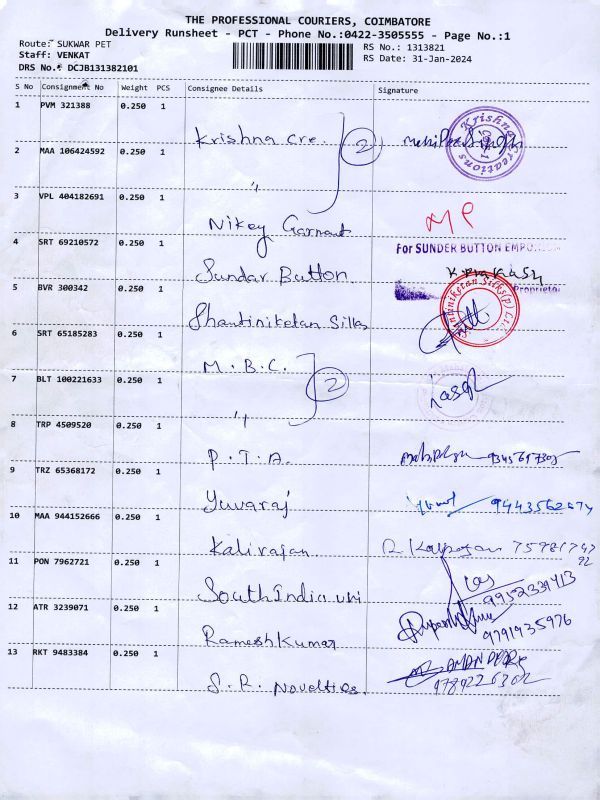 THE PROFESSIONAL COURIERS, COIMBATORE
Delivery Runsheet - PCT - Phone No.:0422-3505555 - Page No.:1
Route: SUKWAR PET
RS No.: 1313821
Staff: VENKAT
RS Date: 31-Jan-2024
DRS No.: DCJB131382101
S No Consignment No Weight PCS Consignee Details Signature
1 PVM 321388 0.250 1
Krishna Cre
Krishna Creations
2 MAA 106424592 0.250 1
2
"
3 VPL 404182691 0.250 1
Nikey Garment
MP
4 SRT 69210572 0.250 1
For SUNDER BUTTON EMPORIUM
Sundar Button
K. Prakash
Proprietor
5 BVR 300342 0.250 1
Shantiniketan Silks
Shantiniketan Silks(p) Lt
6 SRT 65185283 0.250 1
M.B.C.
7 BLT 100221633 0.250 1
2
"
8 TRP 4509520 0.250 1
P.T.A.
9 TRZ 65368172 0.250 1
Yuvaraj
9443562074
10 MAA 944152666 0.250 1
Kalirajan
11 PON 7962721 0.250 1
South India uni
9952331413
12 ATR 3239071 0.250 1
Ramesh Kumar
9791935976
13 RKT 9483384 0.250 1
S.R. Novelties
9789226302